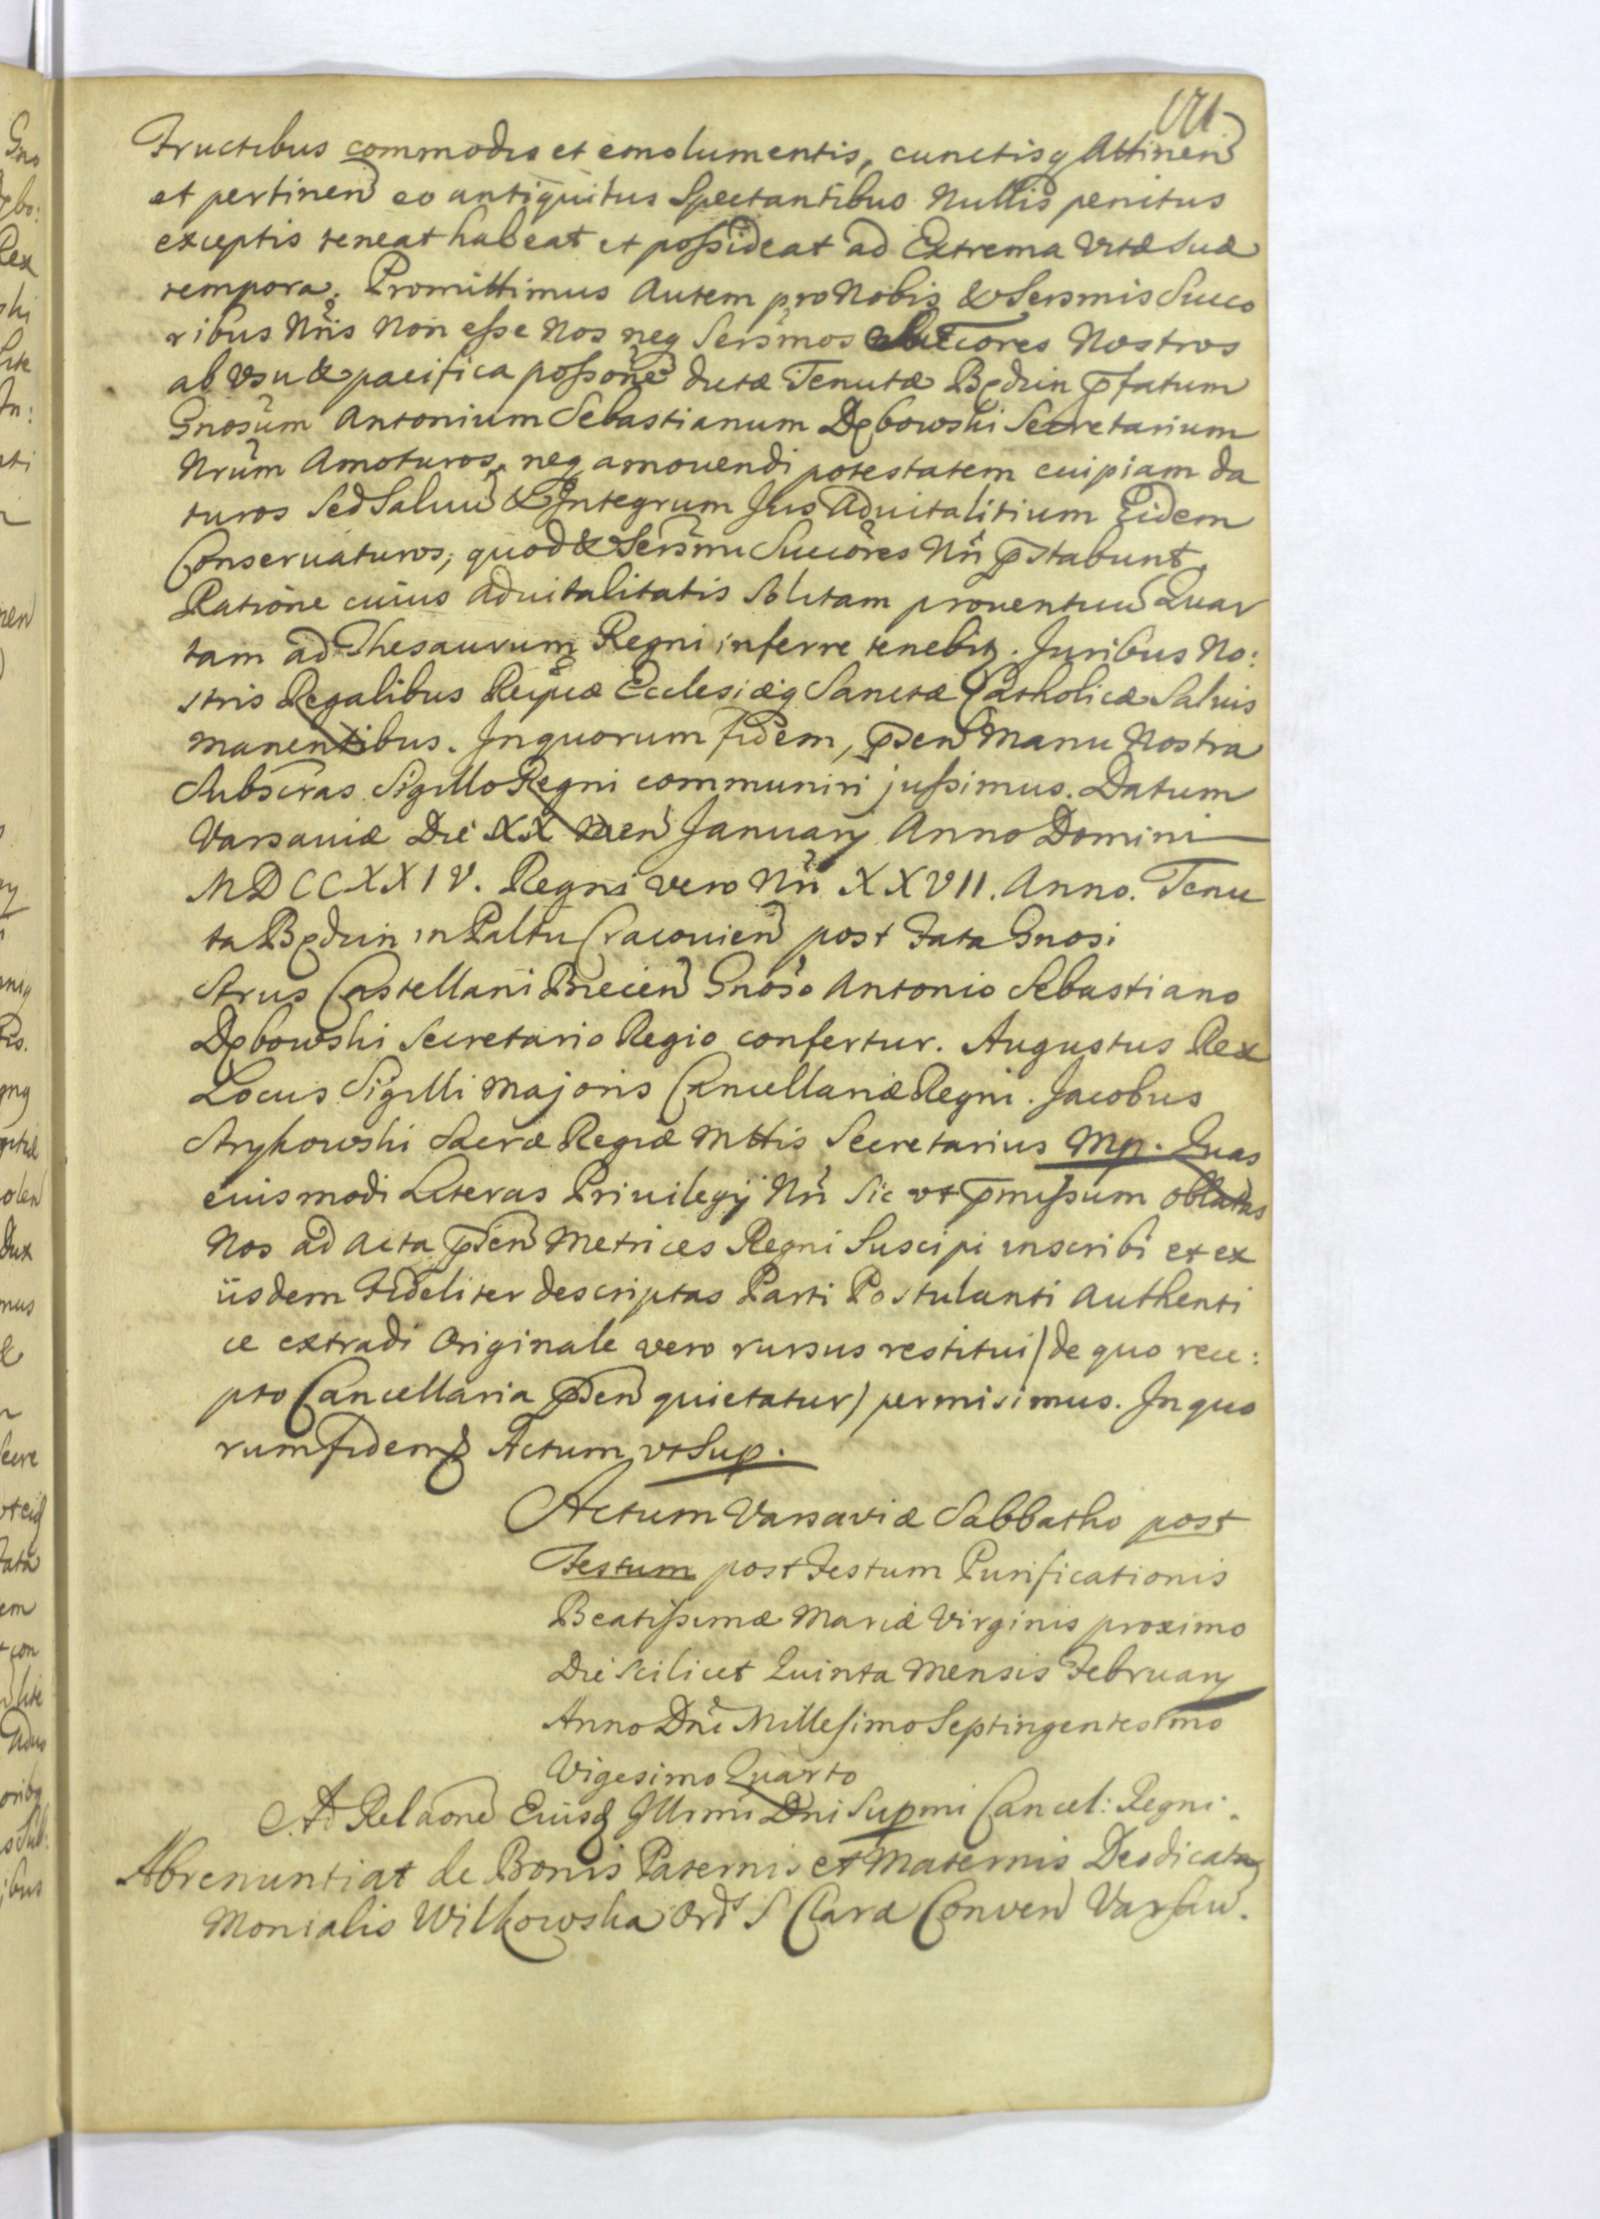 171
Fructibus commodis et emolumentis, cunctisq Attinen
et pertinen eo antiquitus Spectantibus Nullis penitus
exceptis teneat habeat et possideat ad Extrema Vitæ Suæ
tempora. Promittimus Autem pro Nobis & Sersmis Succo
ribus Nris Non esse Nos neq Sersmos Succores Nostros
ab Vsu & pacifica possone dictæ Tenutæ Będzin pfatum
Gnosum Antonium Sebastianum Dębowski Secretarium
Nrum Amoturos, neq amouendi potestatem cuipiam da
turos Sed Saluu & Integrum Jus Aduitalitium Eidem
Conseruaturos, quod & Sersmi Succores Nri pstabunt.
Ratione cuius Aduitalitatis Solitam prouentuu Quar
tam ad Thesaurum Regni inferre tenebitz. Juribus No:
stris Regalibus Reipcæ Ecclesiæq Sanctæ Catholicæ Saluis
manentibus. In quorum fidem, psen Manu Nostra
Subscras Sigillo Regni communiri jussimus. Datum
Varsauiæ Die XX Men January Anno Domini
MDCCXXIV. Regni vero Nri XXVII. Anno. Tenu
ta Będzin in Paltu Cracouien post Fata Gnosi
Strus Castellani Biecien Gnoso Antonio Sebastiano
Dębowski Secretario Regio confertur. Augustus Rex
Locus Sigilli Majoris Cancellariæ Regni. Jacobus
Strykowski Sacræ Regiæ Mttis Secretarius Mp. Quas
euismodi Literas Priuilegij Nri Sic vt pmissum oblatas
Nos ad Acta psen Metrices Regni Suscipi inscribi et ex
iisdem Fideliter descriptas Parti Postulanti Authenti
ce extradi Originale vero rursus restitui / de quo rece:
pto Cancellaria psen quietatur / permisimus. In quo
rum fidem Actum vt Sup.
Actum Varsaviæ Sabbatho post
Festum post Festum Purificationis
Beatissimæ Mariæ Virginis proximo
Die Scilicet Quinta Mensis February
Anno Dni Millesimo Septingentesimo
Vigesimo Quarto
Ad Relaone Eiusd Illrmi Dni Supmi Cancel: Regni.
Abrenuntiat de Bonis Paternis et Maternis Deodicata
Monialis Wilkowska Ord S Claræ Conven Varsav.